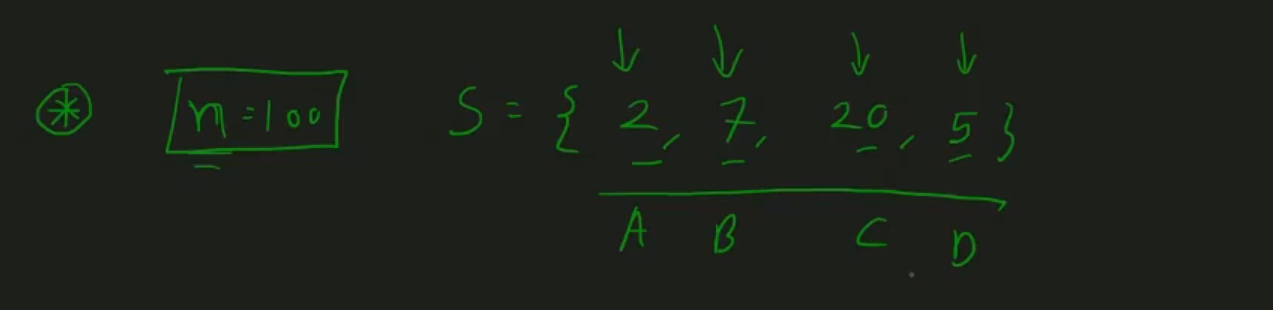 * n=100 S = { 2, 7, 20, 5 }
A B C D